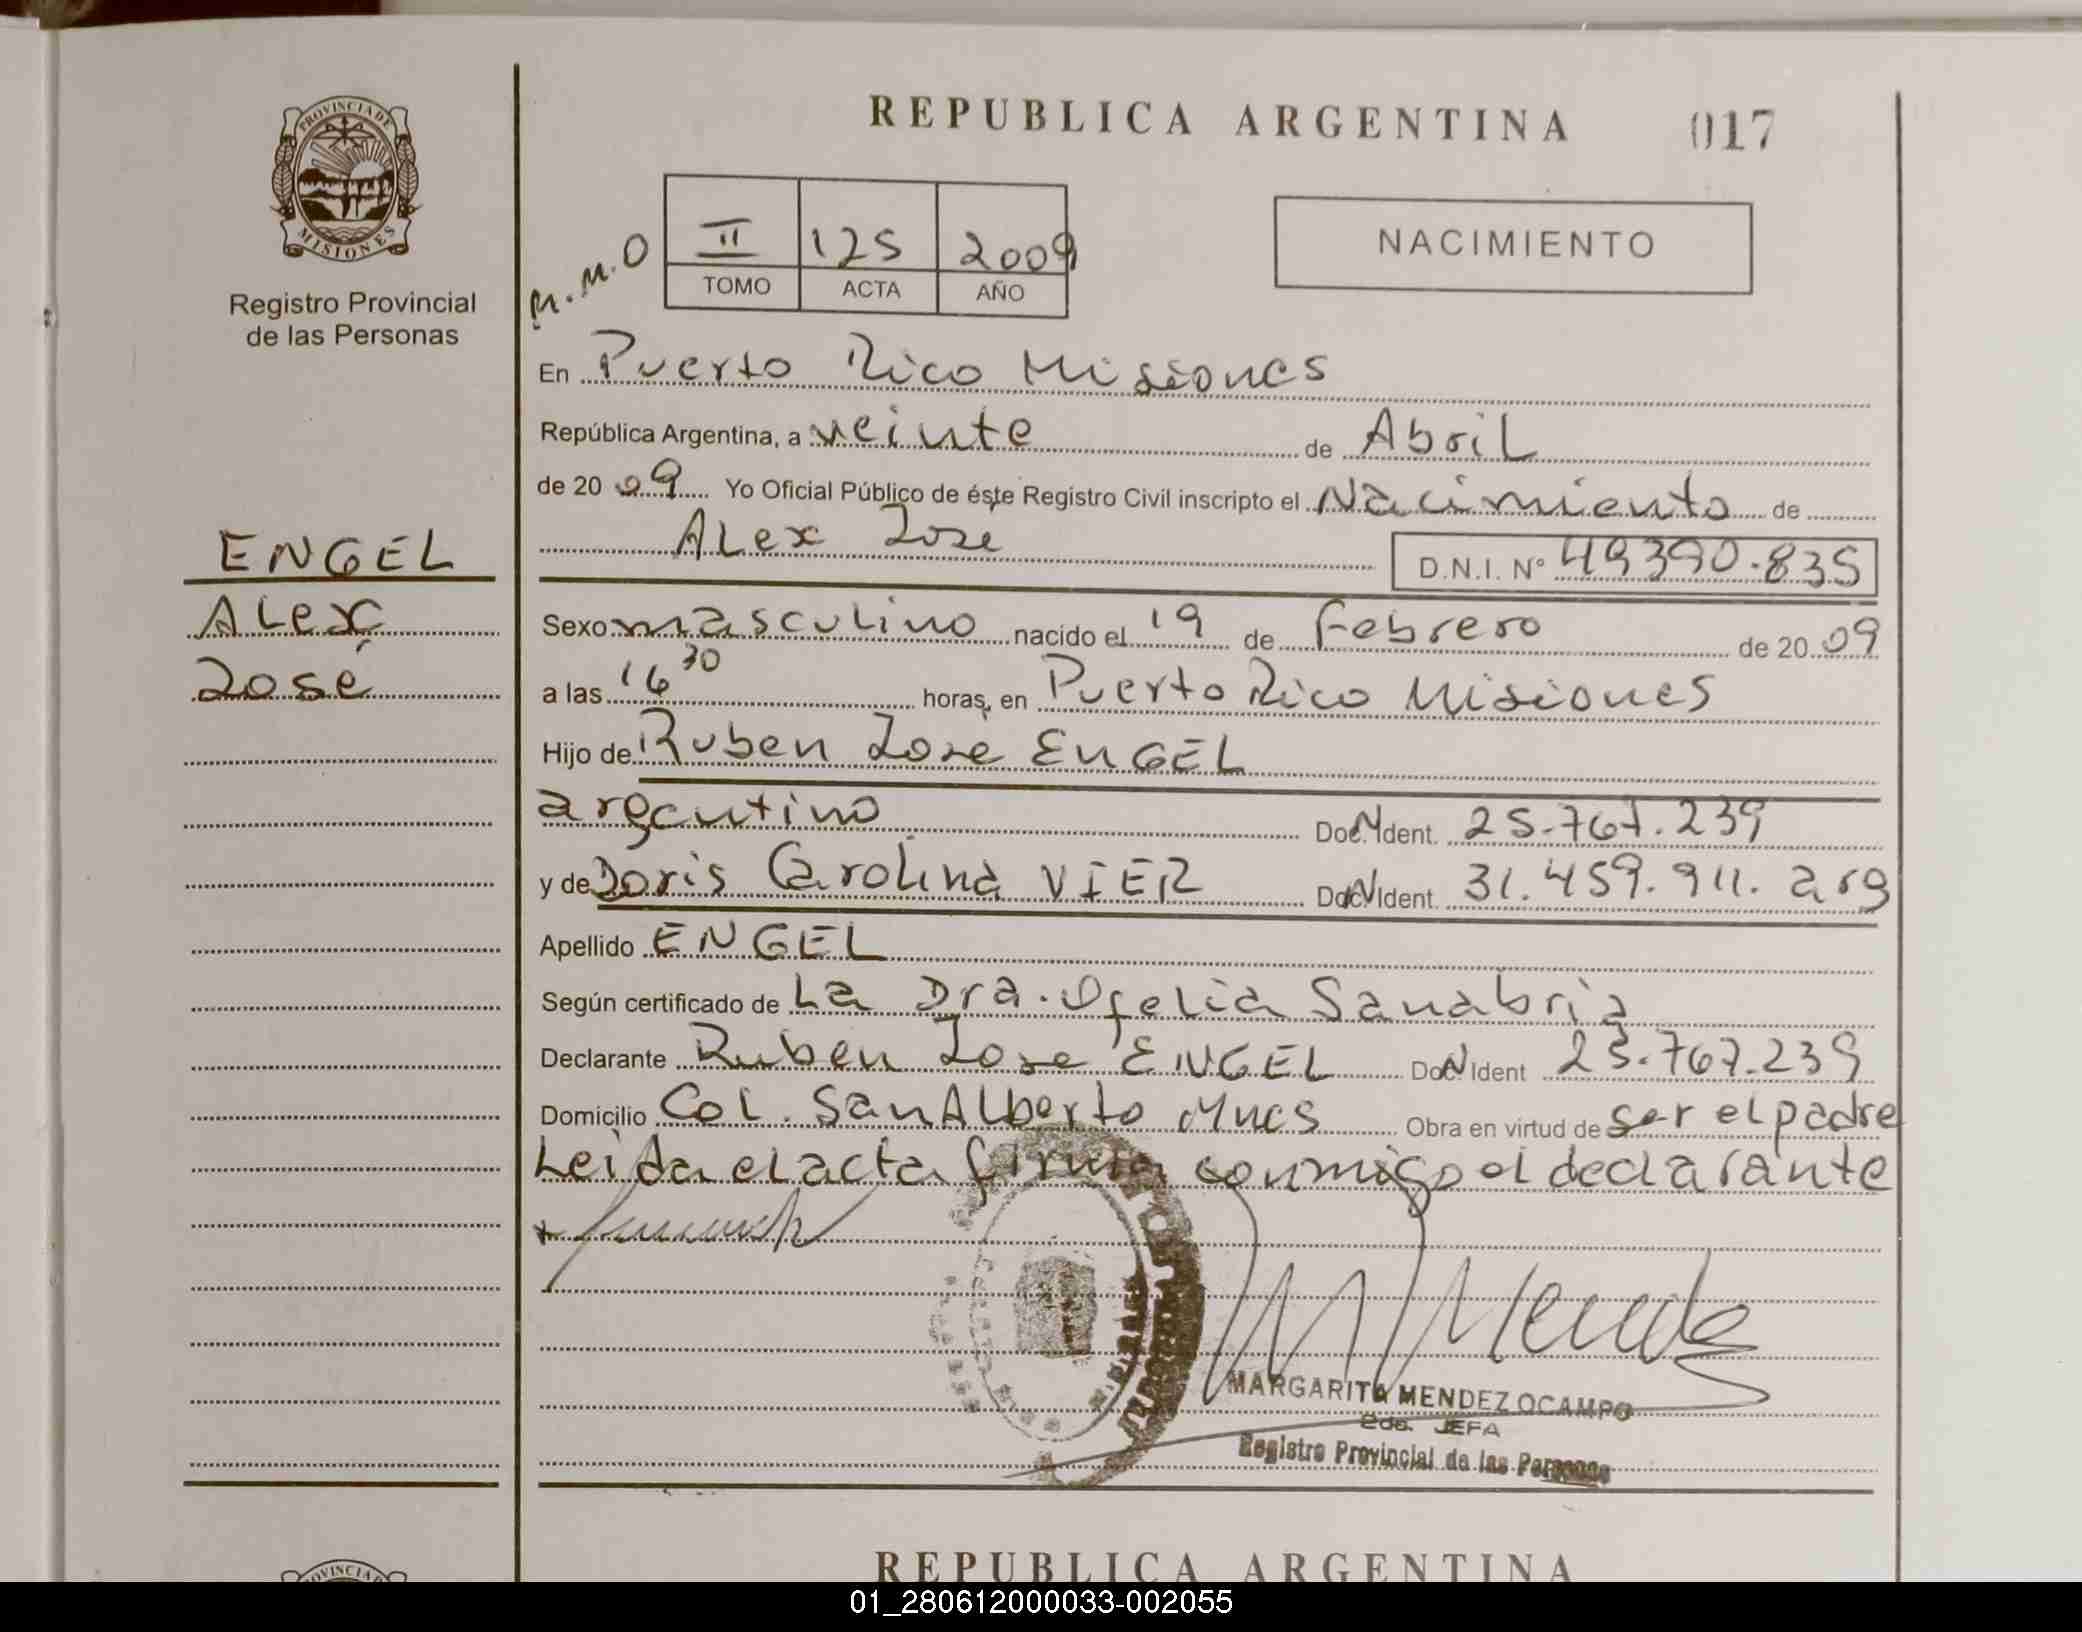 REPUBLICA ARGENTINA 017
PROVINCIA DE
MISIONES
Registro Provincial
de las Personas
M.M.O
II 125 2009
TOMO ACTA AÑO
NACIMIENTO
En Puerto Rico Misiones
República Argentina, a veinte de Abril
de 20 09 Yo Oficial Público de éste Registro Civil inscripto el Nacimiento de
Alex José
D.N.I. N° 49390.835
ENGEL
Alex
José
Sexo masculino nacido el 19 de Febrero de 20 09
a las 16 30 horas, en Puerto Rico Misiones
Hijo de Ruben José ENGEL
argentino Doc. N Ident. 25.767.239
y de Doris Carolina VIER Doc. N Ident. 31.459.911. arg
Apellido ENGEL
Según certificado de La Dra. Ofelia Sanabria
Declarante Ruben José ENGEL Doc. N Ident 25.767.239
Domicilio Col. San Alberto Mnes Obra en virtud de ser el padre
Leida el acta firma conmigo el declarante
MARGARITA MENDEZ OCAMPO
2da. JEFA
Registro Provincial de las Personas
REPUBLICA ARGENTINA
01_280612000033-002055